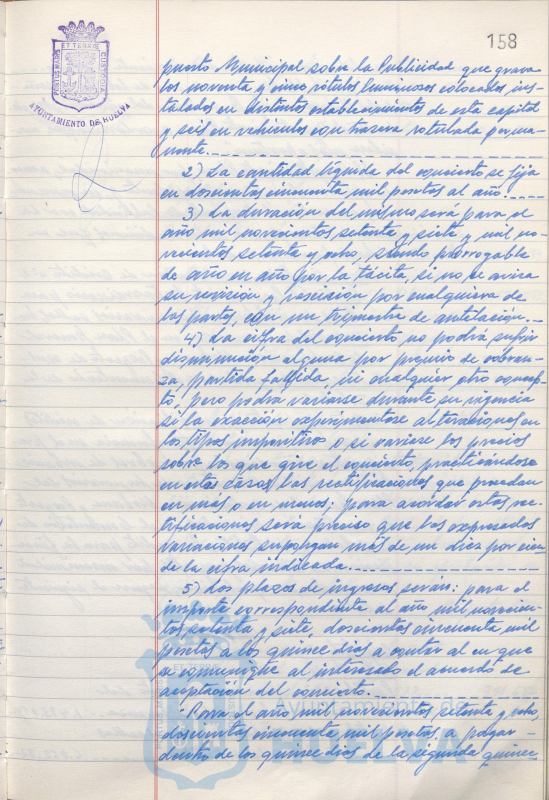 158
ET TERRÆ
CUSTODIA
PORTUS MARIS
AYUNTAMIENTO DE HUELVA
puesto Municipal sobre la Publicidad que grava
los noventa y cinco rótulos luminosos colocados ins-
talados en distintos establecimientos de esta capital
y seis en vehículos con trasera rotulada perma-
nente.
2) La cantidad líquida del concierto se fija
en doscientas cincuenta mil pesetas al año.
3) La duración del mismo será para el
año mil novecientos setenta y siete y mil no-
vecientos setenta y ocho, siendo prorrogable
de año en año por la tácita, si no se avisa
su revisión y rescisión por cualquiera de
las partes, con un trimestre de antelación.
4) La cifra del concierto no podrá sufrir
disminución alguna por premio de cobran-
za, partida fallida, ni cualquier otro concep-
to, pero podrá variarse durante su vigencia
si la exacción experimentase alteraciones en
los tipos impositivos o si variase los precios
sobre los que gire el concierto, practicándose
en estos casos las rectificaciones que procedan
en más o en menos; para acordar estas rec-
tificaciones será preciso que las expresadas
variaciones supongan más de un diez por cien
de la cifra indicada.
5) Los plazos de ingresos serán: para el
importe correspondiente al año mil novecien-
tos setenta y siete, doscientas cincuenta mil
pesetas a los quince días a contar al en que
se comunique al interesado el acuerdo de
aceptación del concierto.
Para el año mil novecientos setenta y ocho,
doscientas cincuenta mil pesetas, a pagar
dentro de los quince días de la segunda quince-
Ayuntamiento de
HUELVA